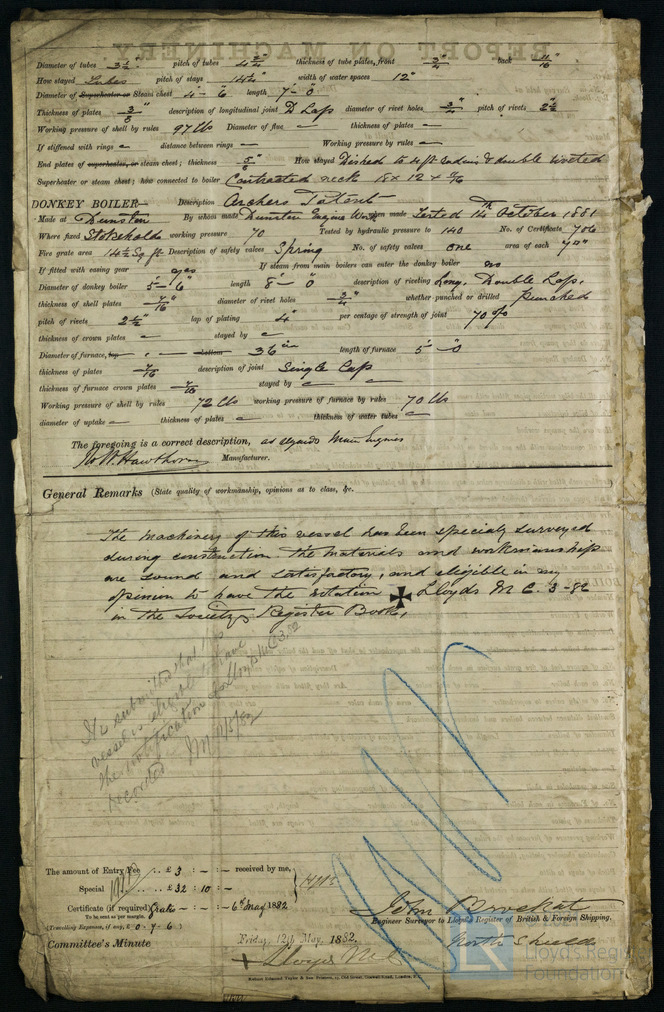 REPORT ON MACHINERY
Diameter of tubes 3 1/2" pitch of tubes 4 3/4" thickness of tube plates, front 3/4" back 11/16"
How stayed Tubes pitch of stays 14 1/4" width of water spaces 12"
Diameter of Superheater or Steam chest 4 - 6 length 7 - 0
Thickness of plates 3/8" description of longitudinal joint D Lap diameter of rivet holes 3/4" pitch of rivets 2 1/2
Working pressure of shell by rules 97 lbs Diameter of flue — thickness of plates —
If stiffened with rings — distance between rings — Working pressure by rules —
End plates of superheater, or steam chest; thickness 5/8" How stayed Dished to 4 ft radius & double riveted
Superheater or steam chest; how connected to boiler Contracted neck 18 x 12 x 7/16
DONKEY BOILER— Description Archers Patent
Made at Dunston By whom made Dunston Engine Works When made Tested 14th October 1881
Where fixed Stokehold working pressure 70 Tested by hydraulic pressure to 140 No. of Certificate 706
Fire grate area 14 1/2 Sq ft Description of safety valves Spring No. of safety valves one area of each 7"
If fitted with easing gear yes If steam from main boilers can enter the donkey boiler no
Diameter of donkey boiler 5 - 6" length 8 - 0 description of riveting Long. Double Lap.
thickness of shell plates 7/16" diameter of rivet holes 3/4" whether punched or drilled punched
pitch of rivets 2 1/2" lap of plating 4" per centage of strength of joint 70 %
thickness of crown plates — stayed by —
Diameter of furnace, top " bottom 36 in length of furnace 5 - 0
thickness of plates 7/16 description of joint Single Lap
thickness of furnace crown plates 7/16 stayed by — —
Working pressure of shell by rules 72 lbs working pressure of furnace by rules 70 lbs
diameter of uptake — thickness of plates — thickness of water tubes —
The foregoing is a correct description, as regards Main Engines
R. W. Hawthorn Manufacturer.
General Remarks (State quality of workmanship, opinions as to class, &c.
The Machinery of this vessel has been specialy surveyed
during construction. The materials and workmanship
are sound and satisfactory, and eligible in my
opinion to have the notation ✠ Lloyds M C. 3-82
in the Society's Register Book.
It is submitted that this
vessel is eligible to have
the notification ✠ Lloyds M C 3.82
recorded M 11/5/82
The amount of Entry Fee .. £ 3 : - : - received by me,
Special .. £ 32 : 10 : -
Certificate (if required) Gratis - 6th May 1882.
To be sent as per margin.
(Travelling Expenses, if any, £ 0 . 7 . 6 )
Committee's Minute
Friday, 12th May, 1882.
+ Lloyds M C
John
Engineer Surveyor to Lloyd's Register of British & Foreign Shipping.
North Shields
Lloyd's Register
Foundation